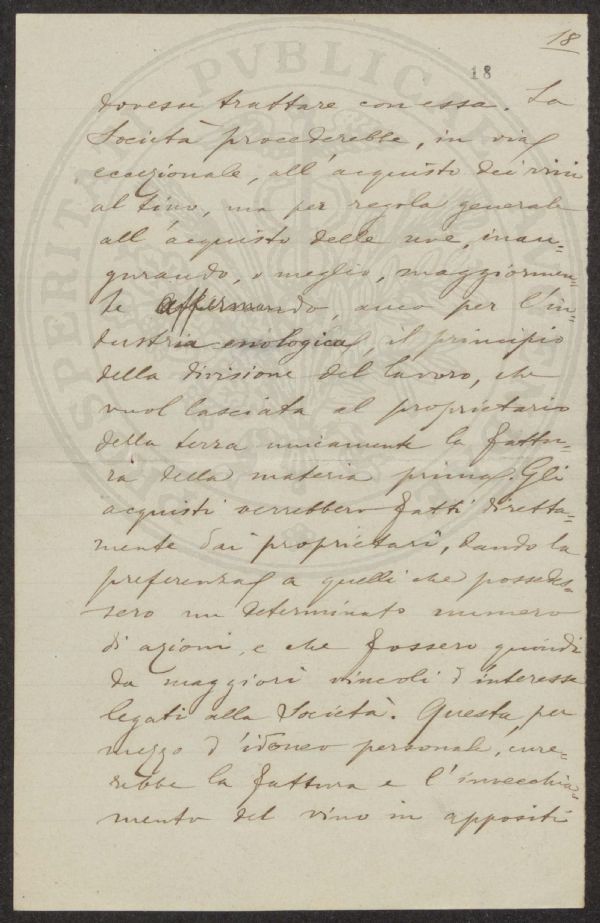 18
18
dovesse trattare con essa. La
Società procederebbe, in via
eccezionale, all'acquisto dei vini
al tino, ma per regola generale
all'acquisto delle uve, inau=
gurando, o meglio, maggiormen=
te affermando, anco per l'in=
dustria enologica, il principio
della divisione del lavoro, che
vuol lasciata al proprietario
della terra unicamente la fattu=
ra della materia prima. Gli
acquisti verrebbero fatti diretta=
mente dai proprietarî, dando la
preferenza a quelli che possedes=
sero un determinato numero
di azioni, e che fossero quindi
da maggiori vincoli d'interesse
legati alla Società. Questa, per
mezzo d'idoneo personale, cure=
rebbe la fattura e l'invecchia=
mento del vino in appositi